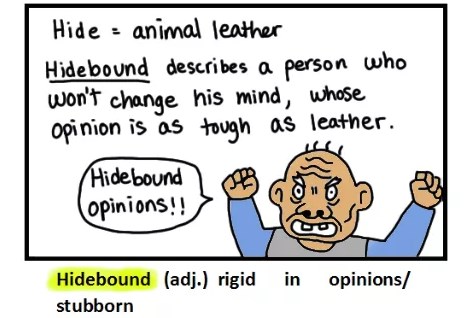 Hide = animal leather
Hidebound describes a person who
won't change his mind, whose
opinion is as tough as leather.
Hidebound
opinions!!
Hidebound (adj.) rigid in opinions/
stubborn